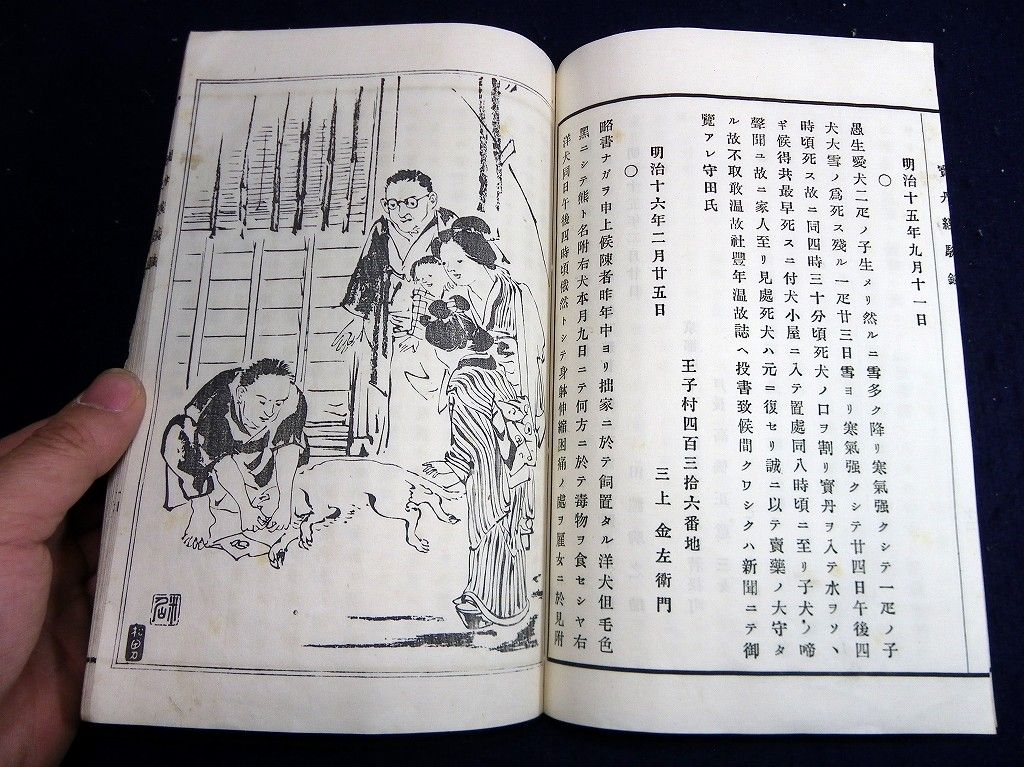 寶丹經驗録
明治十五年九月十一日
〇
愚生愛犬二疋ノ子生メリ然ルニ雪多ク降リ寒氣强クシテ一疋ノ子
犬大雪ノ爲死ス殘ル一疋廿三日雪ヨリ寒氣强クシテ廿四日午後四
時頃死ス故ニ同四時三十分頃死犬ノ口ヲ割リ寶丹ヲ入テ水ヲソヽ
ギ候得共最早死スニ付犬小屋ニ入テ置處同八時頃ニ至リ子犬ノ啼
聲聞ユ故ニ家人至リ見處死犬ハ元ニ復セリ誠ニ以テ賣藥ノ大守タ
ル故不取敢温故社豐年温故誌ヘ投書致候間クワシクハ新聞ニテ御
覽アレ守田氏
王子村四百三拾六番地
三上金左衛門
明治十六年二月廿五日
〇
略書ナガヲ申上候陳者昨年中ヨリ拙家ニ於テ飼置タル洋犬但毛色
黑ニシテ熊ト名附右犬本月九日ニテ何方ニ於テ毒物ヲ食セシヤ右
洋犬同日午後四時頃俄然トシテ身躰伸縮困痛ノ處ヲ雇女ニ於見附
松田刀